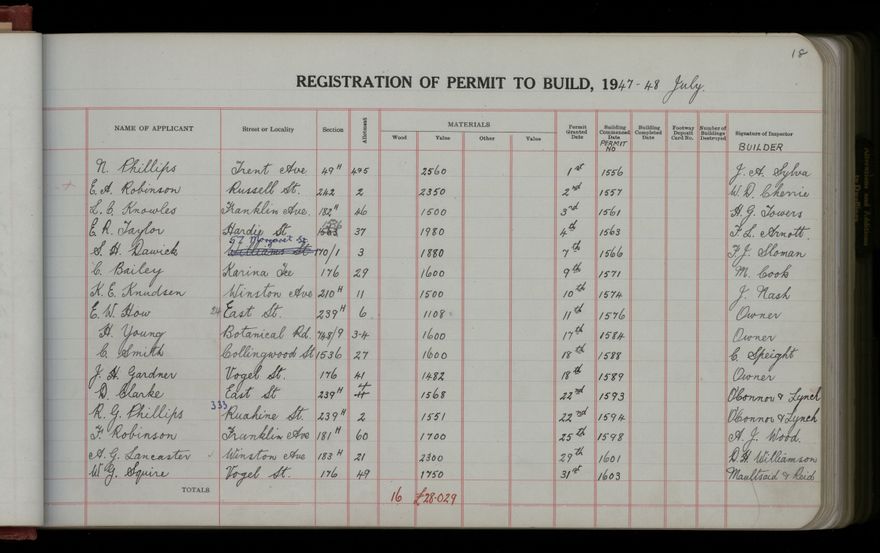 18
REGISTRATION OF PERMIT TO BUILD, 1947-48 July.
NAME OF APPLICANT Street or Locality Section Allotment MATERIALS Wood Value Other Value Permit Granted Date Building Commenced Date PERMIT NO Building Completed Date Footway Deposit Card No. Number of Buildings Destroyed Signature of Inspector BUILDER
N. Phillips Trent Ave 49H 495 2560 1st 1556 J. A. Sylva
E. A. Robinson Russell St. 242 2 2350 2nd 1557 W. D. Cherrie
L. C. Knowles Franklin Ave. 182H 46 1500 3rd 1561 H. G. Towers
E. R. Taylor Hardie St 37 1980 4th 1563 F. L. Arnott.
57 Margaret St.
S. H. Dawick Williams St 170/1 3 1880 7th 1566 F. J. Sloman
C. Bailey Karina Tce 176 29 1600 9th 1571 M. Cook
K. E. Knudsen Winston Ave 210H 11 1500 10th 1574 J. Nash
E. W. How 24 East St. 239H 6 1108 11th 1576 Owner
H. Young Botanical Rd. 748/9 3-4 1600 17th 1584 Owner
C. Smith Collingwood St 1536 27 1600 18th 1588 C. Speight
J. H. Gardner Vogel St. 176 41 1482 18th 1589 Owner
D. Clarke East St 239H 1568 22nd 1593 O'Connor & Lynch
R. G. Phillips 333 Ruahine St. 239H 2 1551 22nd 1594 O'Connor & Lynch
F. Robinson Franklin Ave 181H 60 1700 25th 1598 A. J. Wood.
A. G. Lancaster Winston Ave 183H 21 2300 29th 1601 D. H. Williamson
W. G. Squire Vogel St. 176 49 1750 31st 1603 Maultsaid & Reid
TOTALS 16 £28-029